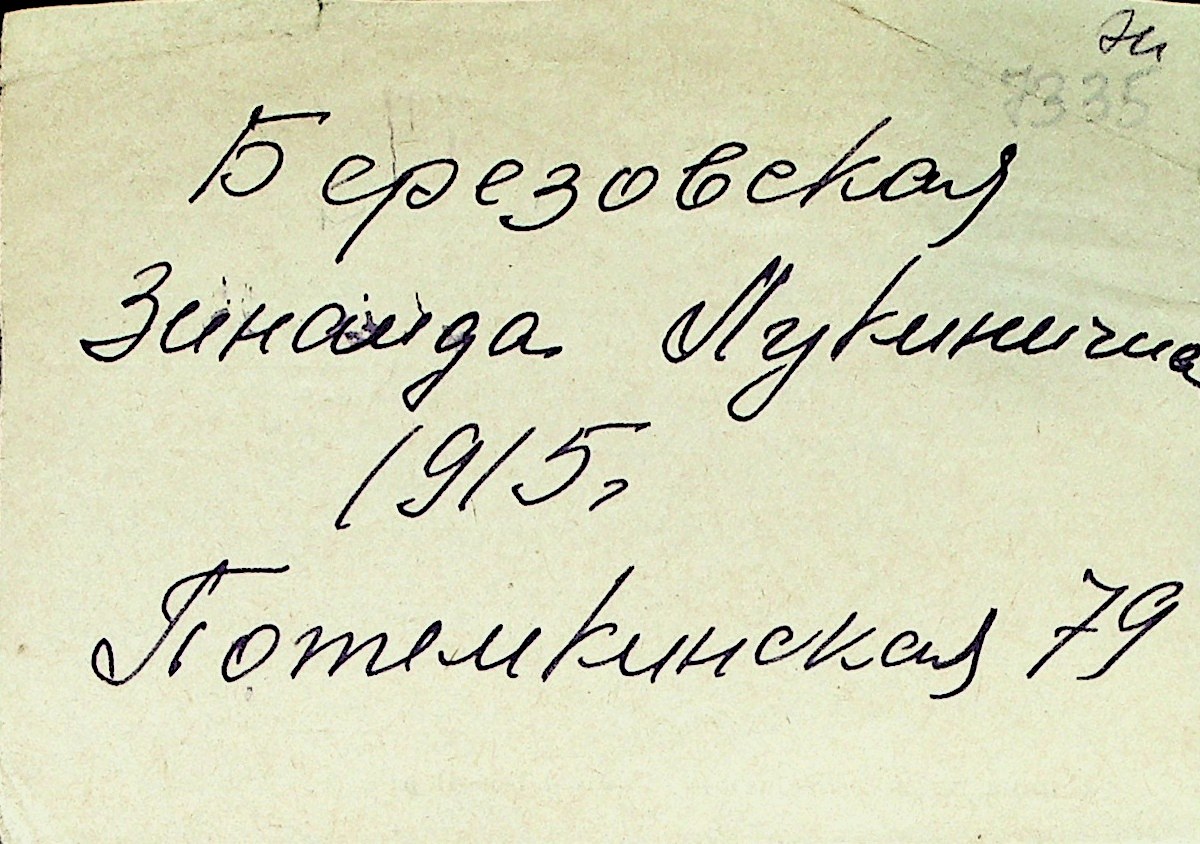 7335
Березовская
Зинаида Лукинична
1915г
Потемкинская 79